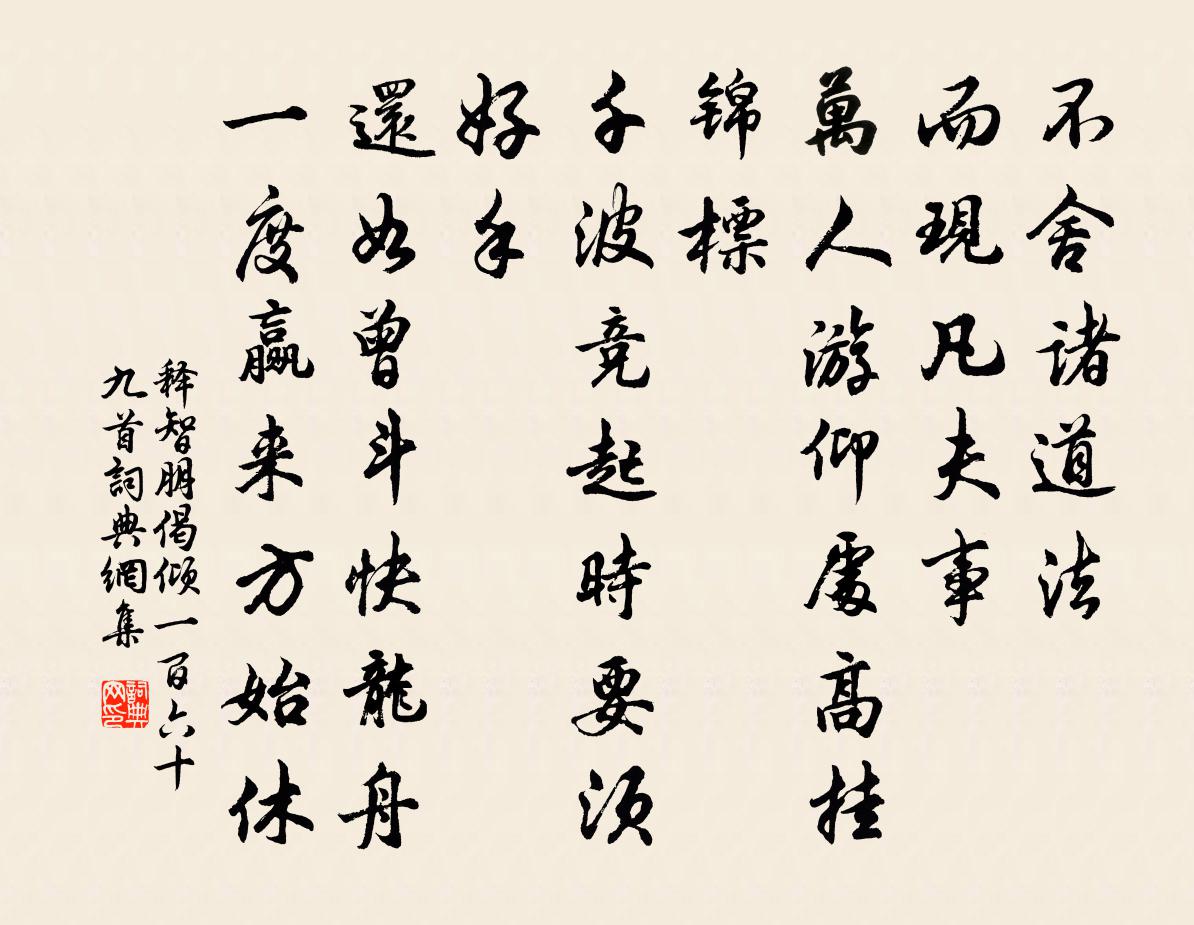 不舍诸道法
而現凡夫事
萬人游仰處高挂
锦標
千波竞起時要须
好手
還如曾斗快龍舟
一度贏来方始休
释智朋偈倾一百六十
九首詞典網集
詞典
网印